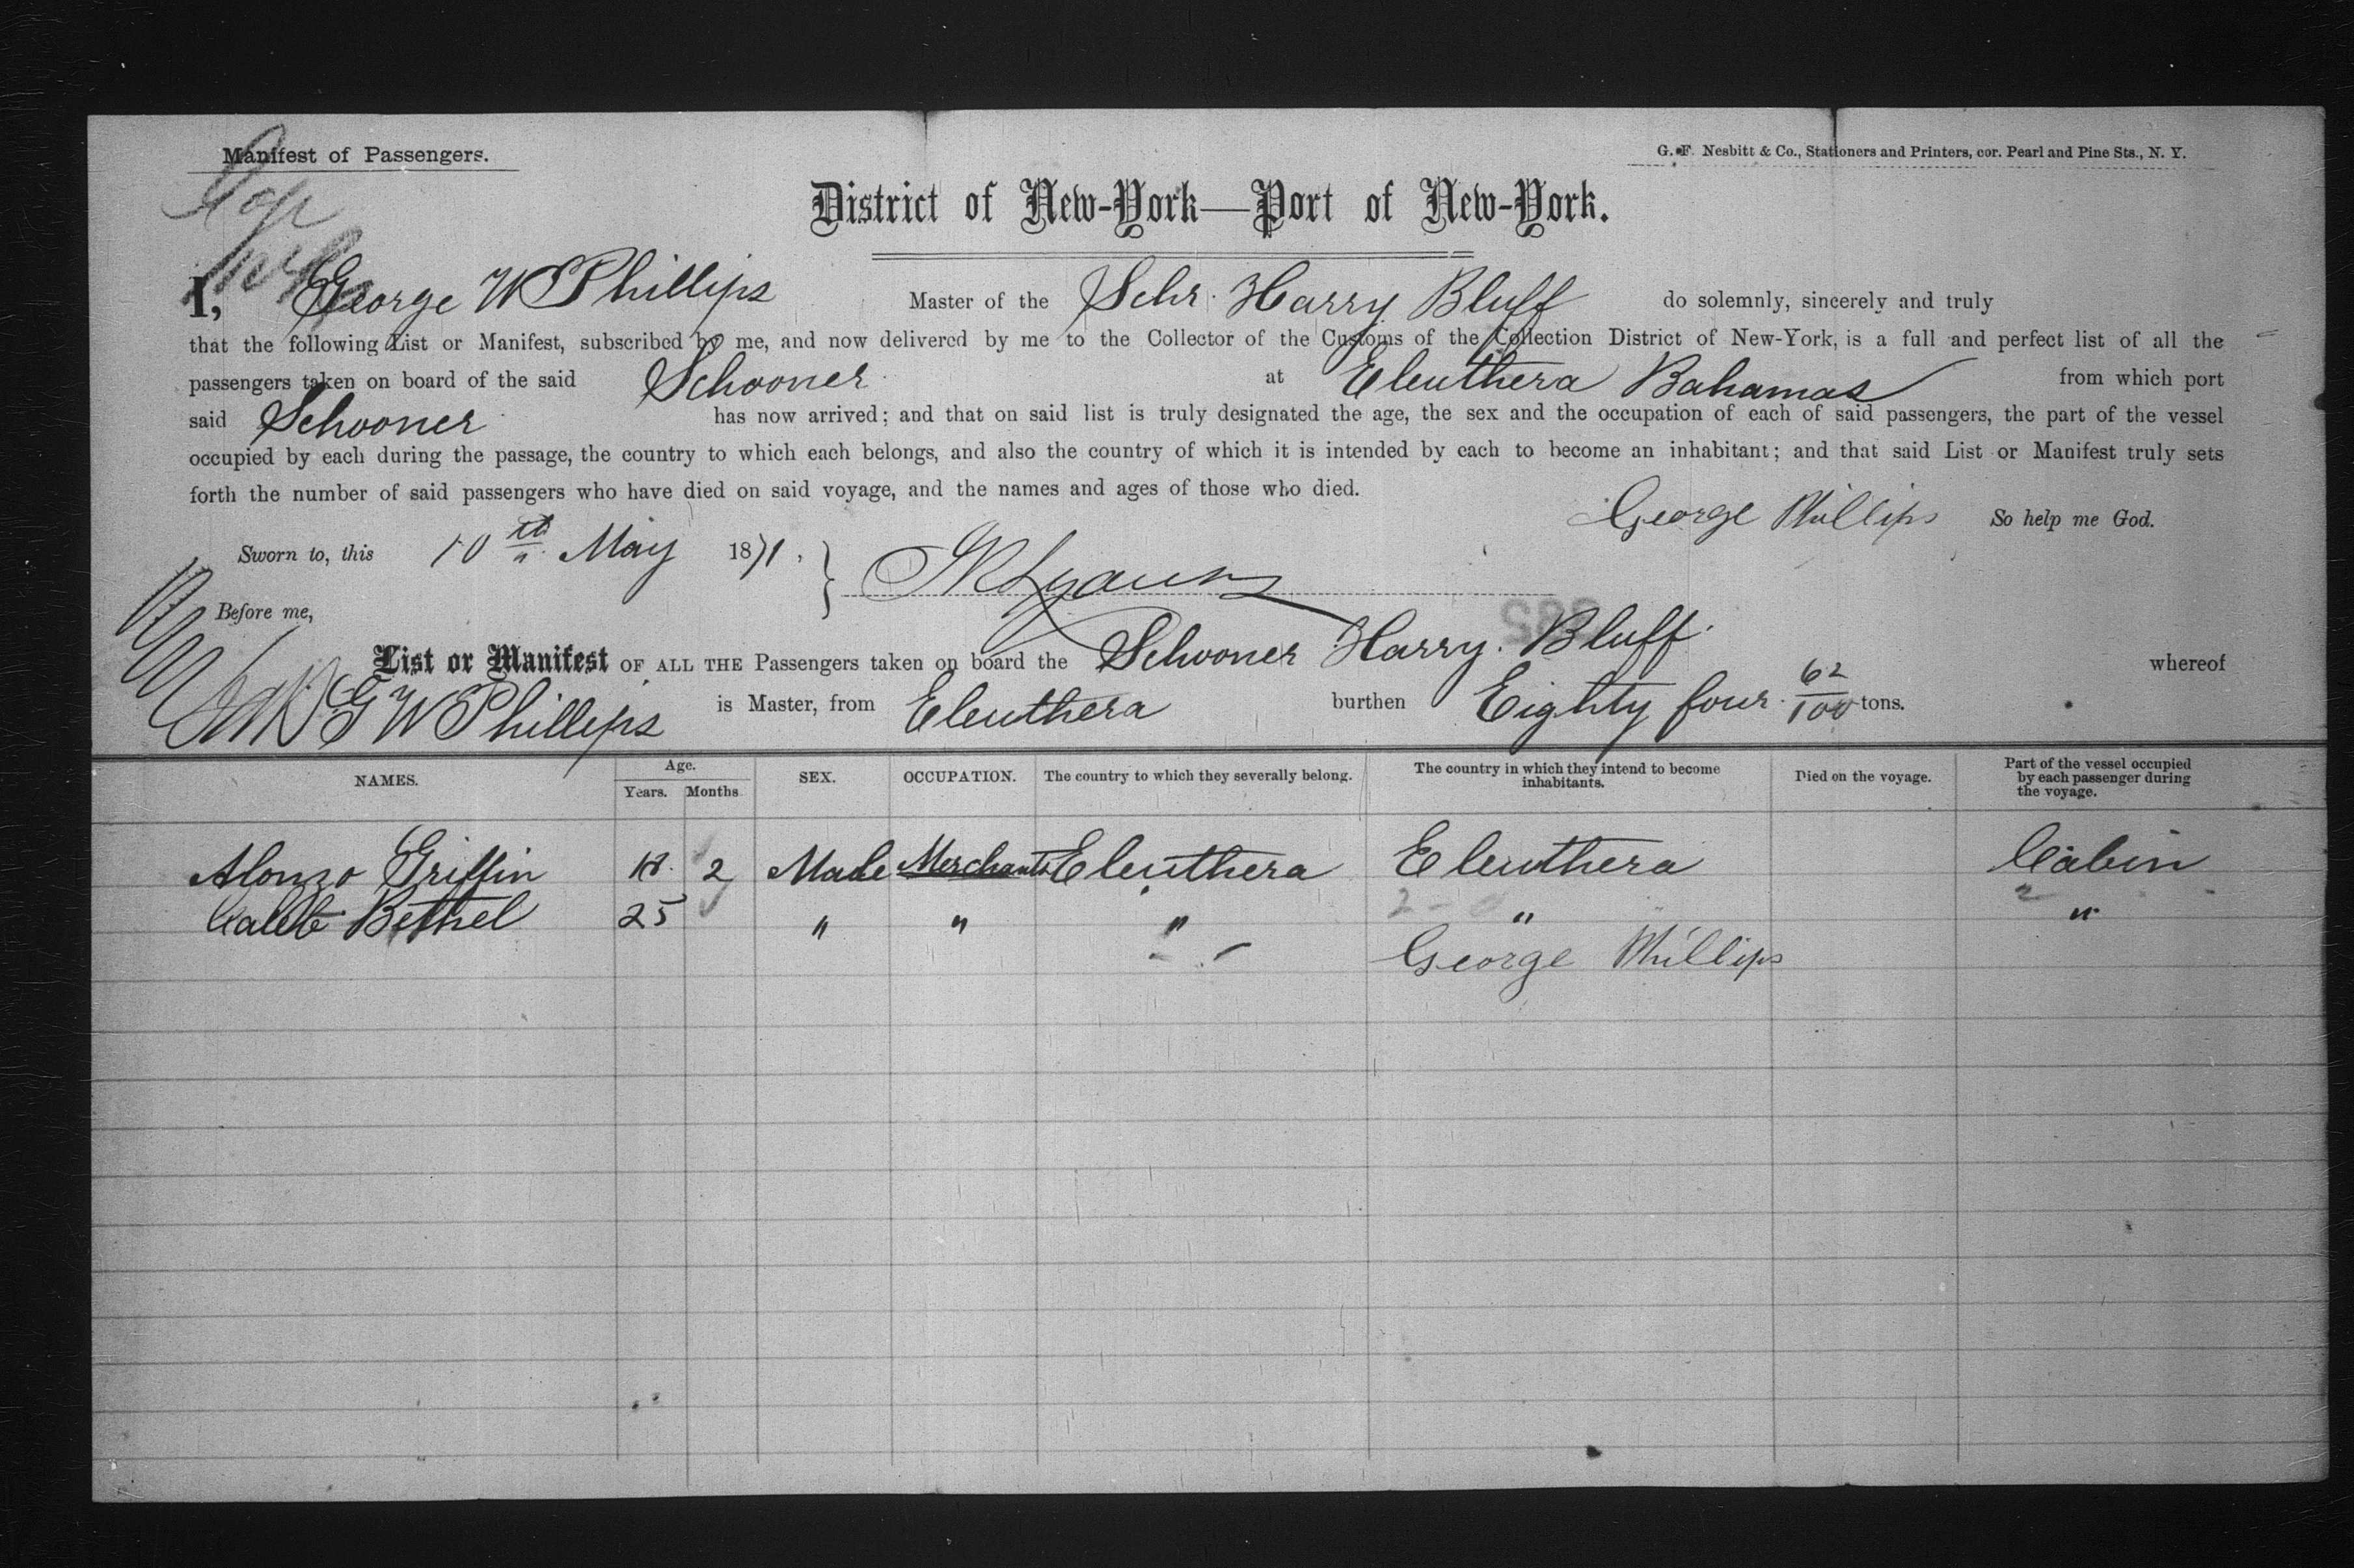 Manifest of Passengers.
G. F. Nesbitt & Co., Stationers and Printers, cor. Pearl and Pine Sts., N. Y.
District of New-York—Port of New-York.
I, George W Phillips Master of the Schr. Harry Bluff do solemnly, sincerely and truly
that the following List or Manifest, subscribed by me, and now delivered by me to the Collector of the Customs of the Collection District of New-York, is a full and perfect list of all the
passengers taken on board of the said Schooner at Eleuthera Bahamas from which port
said Schooner has now arrived; and that on said list is truly designated the age, the sex and the occupation of each of said passengers, the part of the vessel
occupied by each during the passage, the country to which each belongs, and also the country of which it is intended by each to become an inhabitant; and that said List or Manifest truly sets
forth the number of said passengers who have died on said voyage, and the names and ages of those who died.
George Phillips So help me God.
Sworn to, this 10th May 1871.
Before me,
List or Manifest OF ALL THE Passengers taken on board the Schooner Harry. Bluff. whereof
G W Phillips is Master, from Eleuthera burthen Eighty four 62/100 tons.
NAMES. Age. Years. Months SEX. OCCUPATION. The country to which they severally belong. The country in which they intend to become inhabitants. Died on the voyage. Part of the vessel occupied by each passenger during the voyage.
Alonzo Griffin 18. 2 Male Merchants Eleuthera Eleuthera Cabin
Caleb Bethel 25 " " " " "
George Phillips